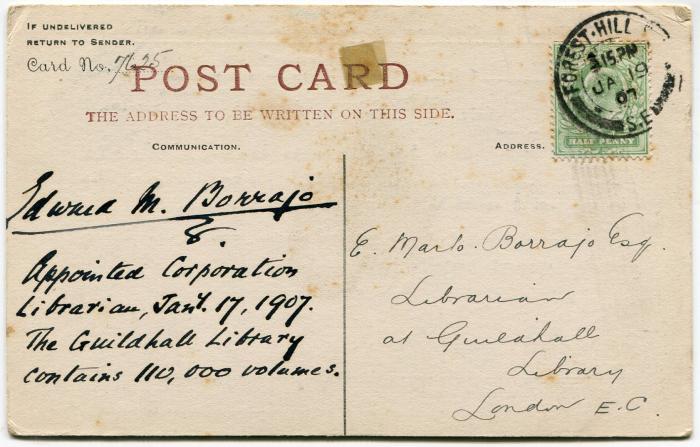 IF UNDELIVERED
RETURN TO SENDER.
Card No. 7625
POST CARD
THE ADDRESS TO BE WRITTEN ON THIS SIDE.
COMMUNICATION.
ADDRESS.
FOREST·HILL
3 15 PM
JA 19
07
S.E
HALF PENNY
Edward M. Borrajo
Appointed Corporation
Librarian, Jany. 17, 1907.
The Guildhall Library
contains 110,000 volumes.
E. Marto. Borrajo Esq.
Librarian
at Guildhall
Library
London E.C.